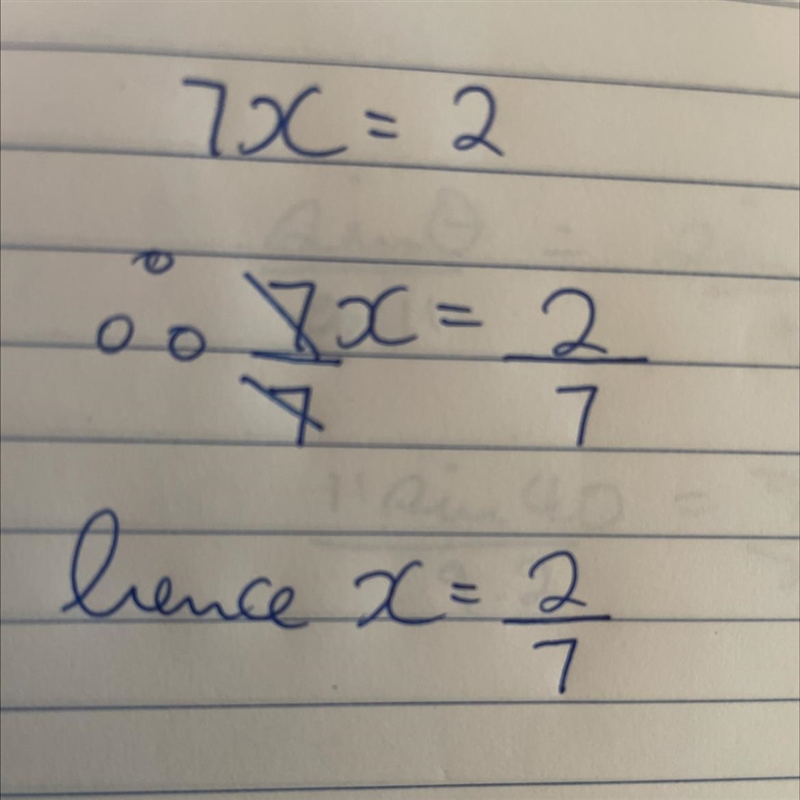 7x = 2
∴ 7x/7 = 2/7
hence x = 2/7